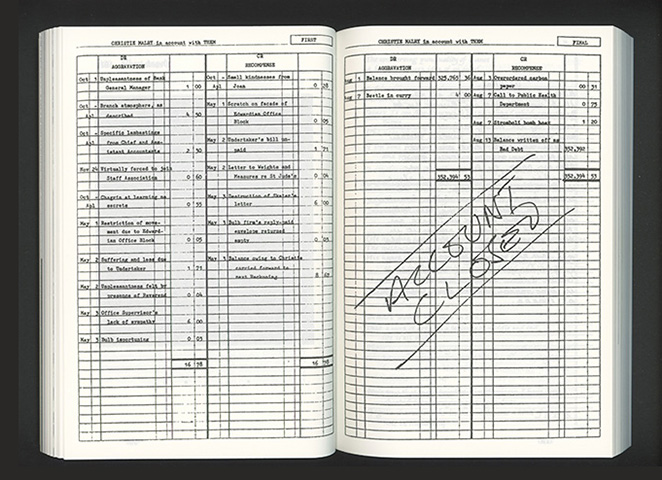 CHRISTIE MALRY in account with THEM
FIRST
DR
AGGRAVATION
Oct 1 Unpleasantness of Bank
General Manager 1 00
Oct - Branch atmosphere, as
Apl described 4 50
Oct - Specific lambastings
Apl from Chief and Ass-
istant Accountants 2 50
Nov 24 Virtually forced to join
Staff Association 0 60
Oct - Chagrin at learning
Apl secrets 0 55
May 1 Restriction of move-
ment due to Edward-
ian Office Block 0 05
May 2 Suffering and loss due
to Undertaker 1 71
May 2 Unpleasantness felt by
presence of Reverend 0 04
May 3 Office Supervisor's
lack of sympathy 6 00
May 3 Bulb importuning 0 05
16 98
CR
RECOMPENSE
Oct - Small kindnesses from
Apl Joan 0 28
May 1 Scratch on facade of
Edwardian Office
Block 0 05
May 2 Undertaker's bill un-
paid 1 71
May 2 Letter to Weights and
Measures re St Jude's 0 04
May 3 Destruction of Skater's
letter 6 00
May 3 Bulb firm's reply-paid
envelope returned
empty 0 05
May 3 Balance owing to Christie
carried forward to
next Reckoning
16 98
CHRISTIE MALRY in account with THEM
FINAL
DR
AGGRAVATION
Aug 1 Balance brought forward 36
Aug 7 Beetle in curry 4 00
352,394 53
CR
RECOMPENSE
Aug 3 Overordered carbon
paper 00 31
Aug 7 Call to Public Health
Department 0 75
Aug 7 Stromboli bomb hoax 1 20
Aug 13 Balance written off as
Bad Debt 352,392
352,394 53
ACCOUNT
CLOSED